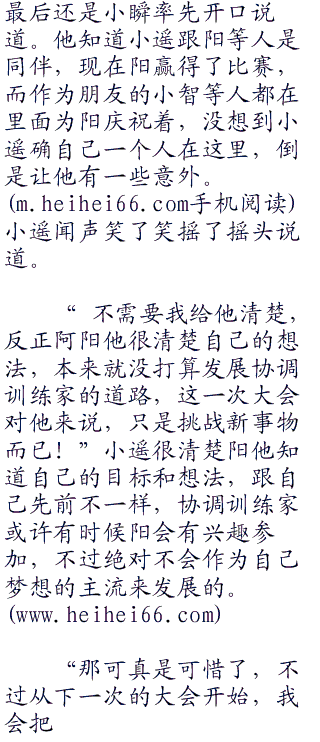 最后还是小瞬率先开口说
道。他知道小遥跟阳等人是
同伴，现在阳赢得了比赛，
而作为朋友的小智等人都在
里面为阳庆祝着，没想到小
遥确自己一个人在这里，倒
是让他有一些意外。
(m.heihei66.com手机阅读)
小遥闻声笑了笑摇了摇头说
道。
“ 不需要我给他清楚，
反正阿阳他很清楚自己的想
法，本来就没打算发展协调
训练家的道路，这一次大会
对他来说，只是挑战新事物
而已！”小遥很清楚阳他知
道自己的目标和想法，跟自
己先前不一样，协调训练家
或许有时候阳会有兴趣参
加，不过绝对不会作为自己
梦想的主流来发展的。
(www.heihei66.com)
“那可真是可惜了，不
过从下一次的大会开始，我
会把